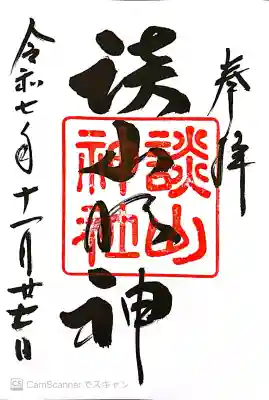 奉拝
談山大明神
談山神社
令和七年十一月廿七日
CS CamScanner でスキャン